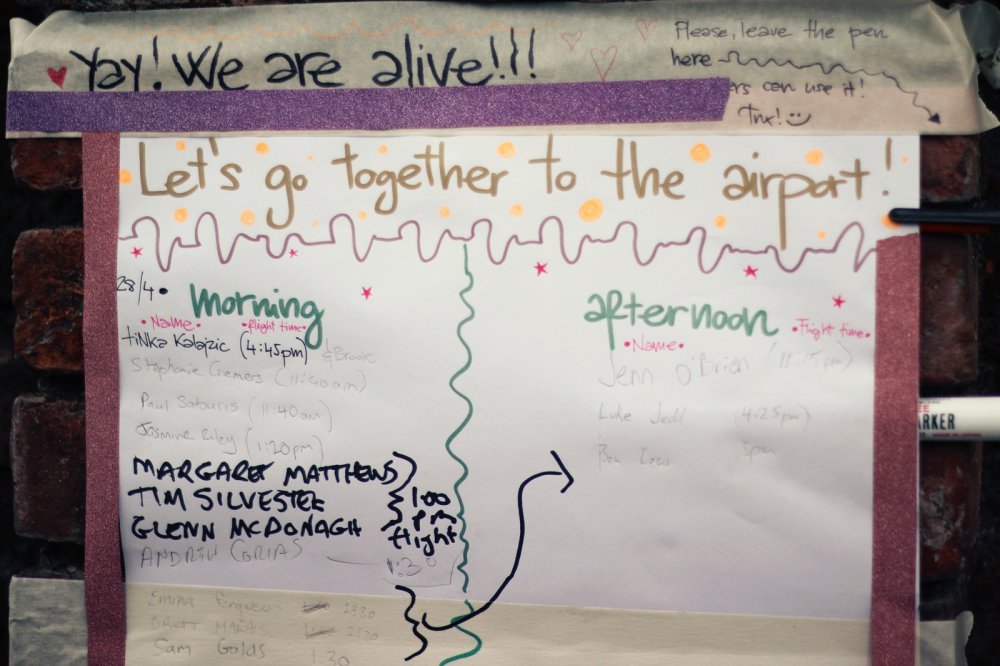 Yay! We are alive!!!
Please, leave the pen
here
ers can use it!
Tnx!
Let's go together to the airport!
28/4 •
morning
• Name • • flight time •
tiNKa Kalajzic (4:45pm) & Brook
Stephanie Cremers (11:40am)
Paul Satouris (11:40am)
Jasmine Riley (1:20pm)
MARGARET MATTHEWS
TIM SILVESTER
GLENN MCDONAGH
1:00
pm
flight
1:30
Emma Ferguson 2330
BRETT 2330
Sam Golds 1.30
afternoon
• Name • • Flight time •
Jenn O'Brien (11:15pm)
Luke Jedd (4:25pm)
Ben 3pm
ARKER